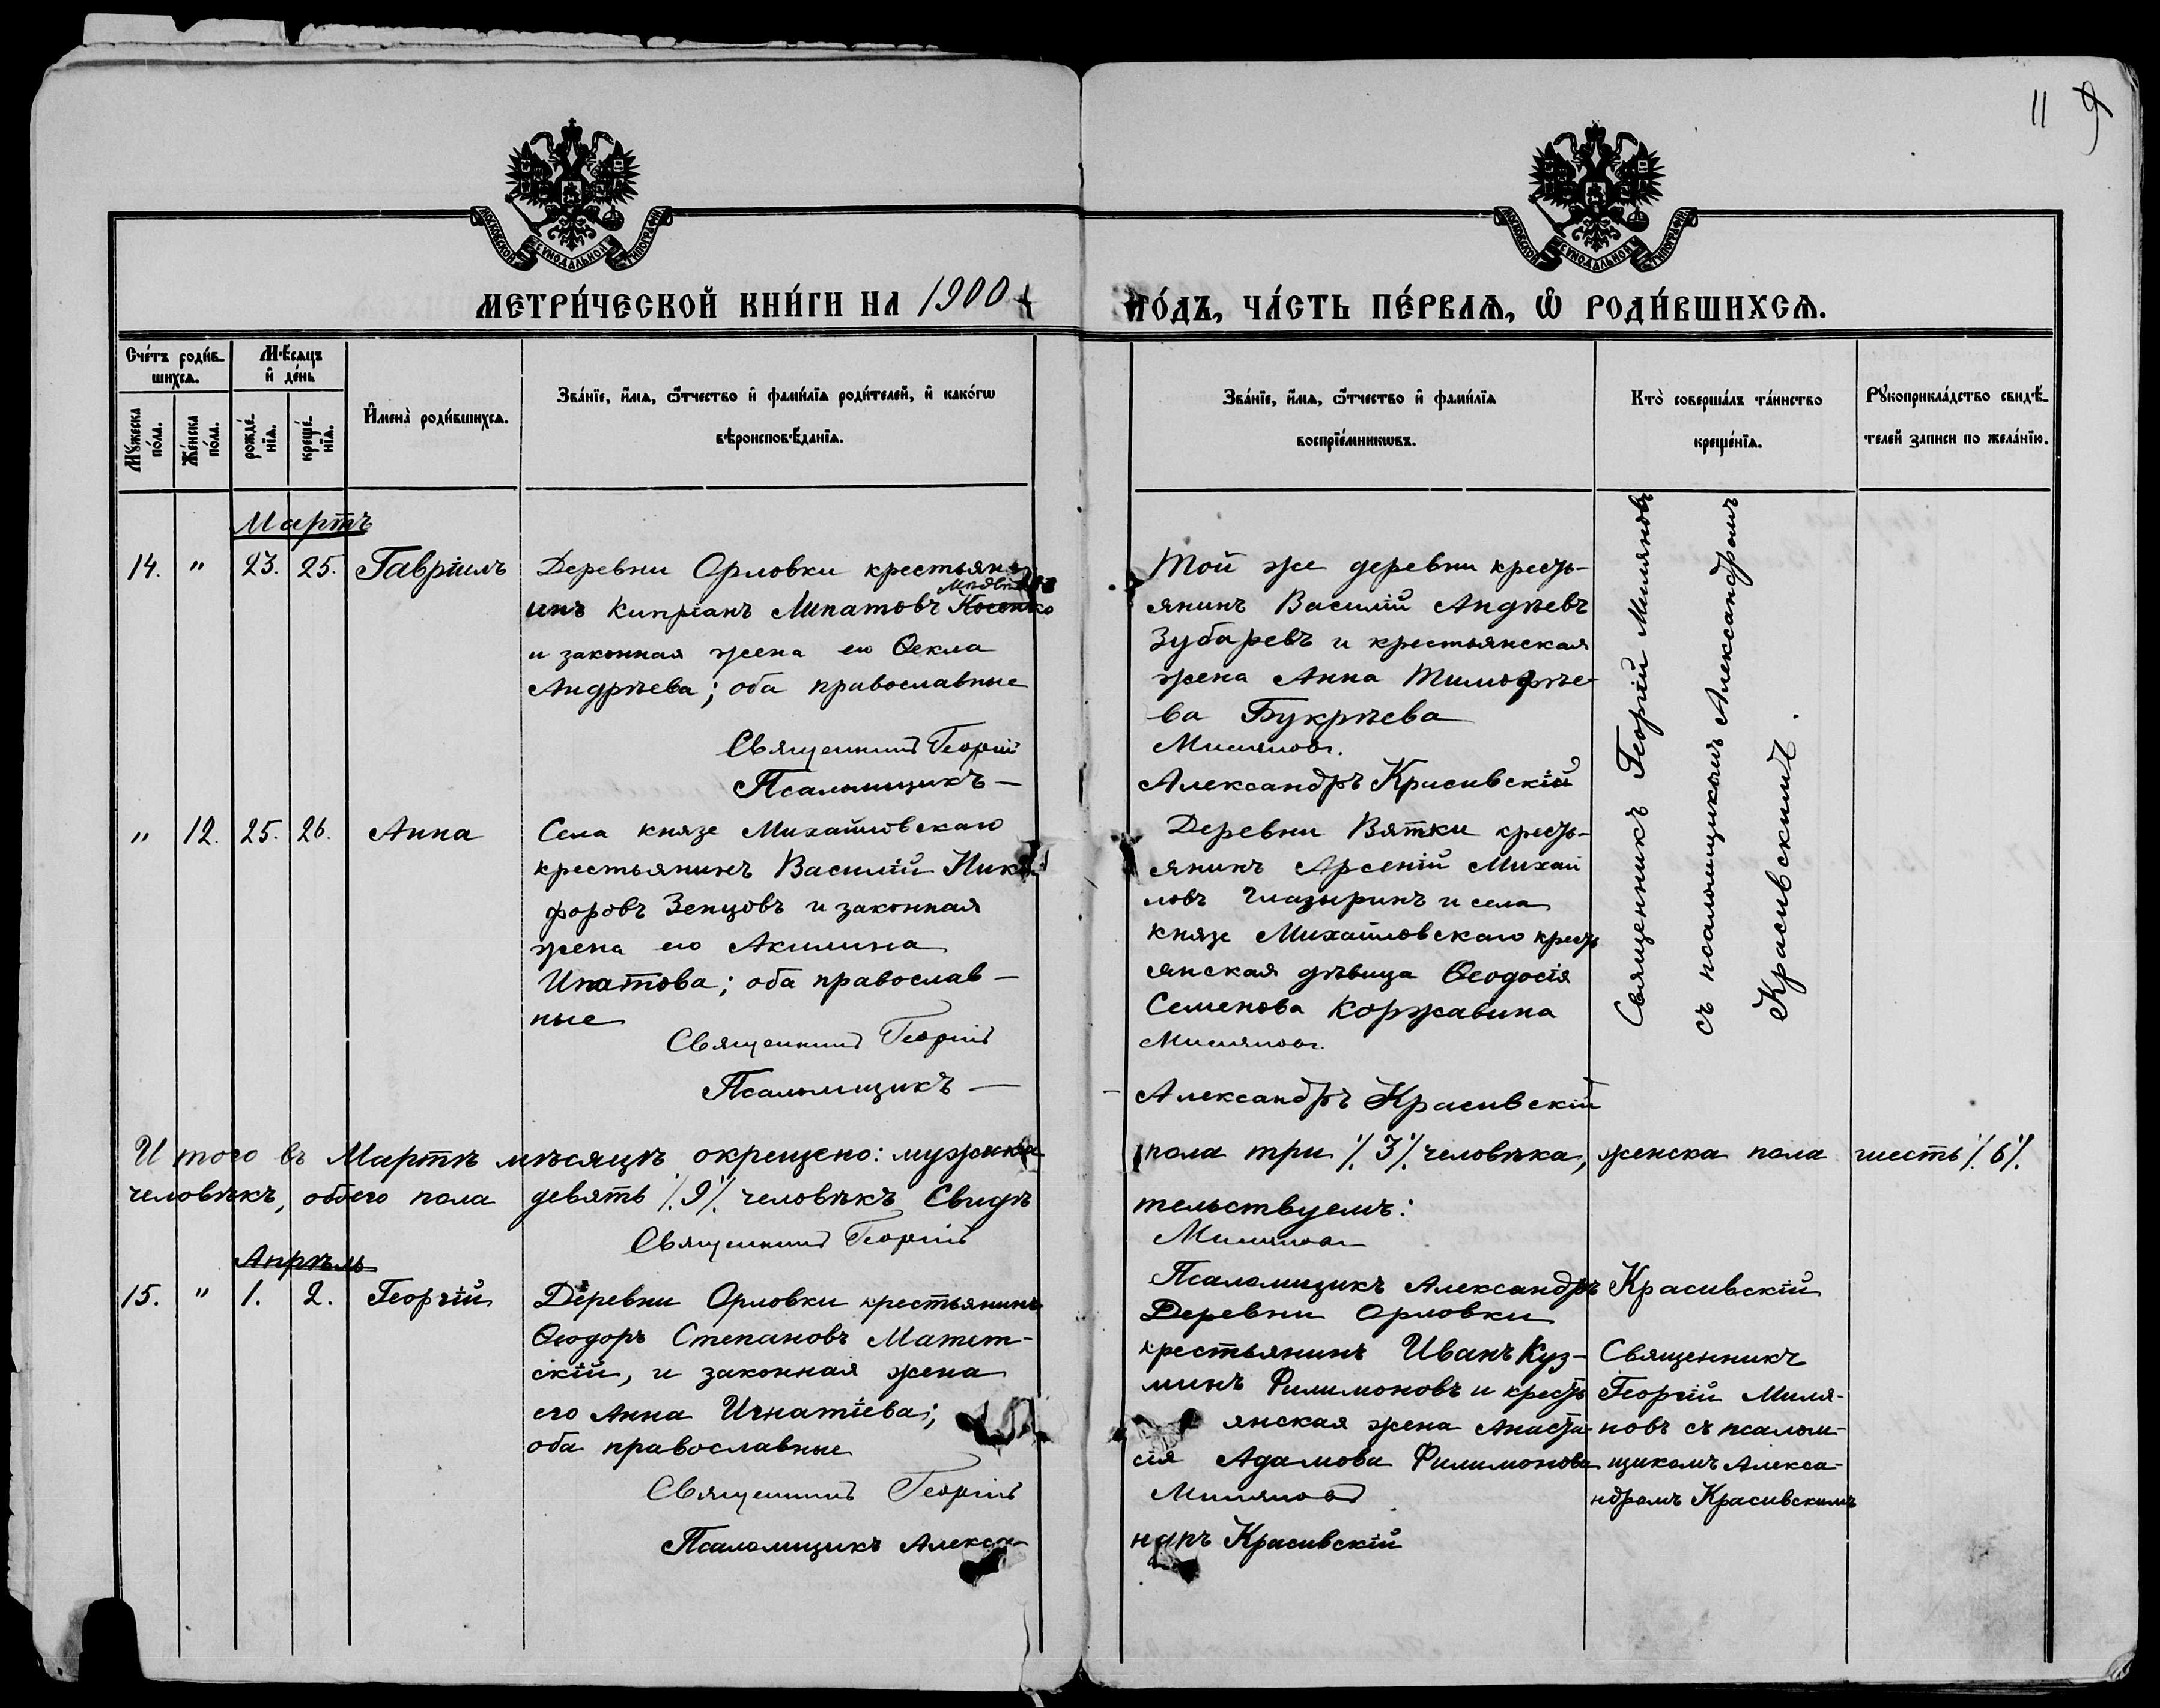 11 9
МОСКОВСКОЙ СѴНОДАЛЬНОЙ ТИПОГРАФІИ
МОСКОВСКОЙ СѴНОДАЛЬНОЙ ТИПОГРАФІИ
МЕТРИ́ЧЕСКОЙ КНИ́ГИ НА 1900
ГО́ДЪ, ЧА́СТЬ ПЕ́РВАѦ, Ѡ҆ РОДИ́ВШИХСѦ.
Сче́тъ роди́в-
шихсѧ.
Мѣ́сѧцъ
и҆ де́нь
Мꙋ́жеска
по́ла.
Же́нска
по́ла.
рожде́-
нїѧ.
креще́-
нїѧ.
И҆мена̀ роди́вшихсѧ.
Зва́нїе, и҆́мѧ, ѻ҆́тчество и҆ фами́лїѧ роди́телей, и҆ како́гѡ
вѣроисповѣ́данїѧ.
Зва́нїе, и҆́мѧ, ѻ҆́тчество и҆ фами́лїѧ
воспрїе́мникѡвъ.
Кто̀ соверша́лъ та́инство
креще́нїѧ.
Рꙋкоприкла́дство свидѣ́-
телей записи по жела́нїю.
Мартъ
14. " 23. 25. Гавріилъ
Деревни Орловки крестьян-
инъ Кипріанъ Липатовъ Косенко
и законная жена его Ѳекла
Андрѣева; оба православные
Священникъ Георгій
Псаломщикъ —
Той же деревни кресть-
янинъ Василій Андѣевъ
Зубаревъ и крестьянская
жена Анна Тимофѣе-
ва Букрѣева
Миляновъ.
Александръ Красивскій
Священникъ Георгій Миляновъ
съ псаломщикомъ Александромъ
Красивскимъ.
" 12. 25. 26. Анна
Села князе Михайловскаго
крестьянинъ Василій Ники-
форовъ Зенцовъ и законная
жена его Акилина
Ипатова; оба православ-
ные
Священникъ Георгій
Псаломщикъ —
Деревни Вятки кресть-
янинъ Арсеній Михай
ловъ Глазыринъ и села
князе Михайловскаго кресть
янская дѣвица Ѳеодосія
Семенова Коржавина
Миляновъ.
— Александръ Красивскій
Итого въ Мартѣ мѣсяцѣ окрещено: мужска
пола три /.3/. человѣка, женска пола шесть /.6/.
человѣкъ, обоего пола девять /.9/. человѣкъ Свидѣ
тельствуемъ:
Священникъ Георгій
Миляновъ
Псаломщикъ Александръ Красивскій
Апрѣль
15. " 1. 2. Георгій
Деревни Орловки крестьянинъ
Ѳеодоръ Степановъ Матет-
скій, и законная жена
его Анна Игнатіева;
оба православные
Священникъ Георгій
Псаломщикъ Алекса-
Деревни Орловки
крестьянинъ Иванъ Куз-
минъ Филимоновъ и кресть
янская жена Анаста-
сія Адамова Филимонова
Миляновъ
ндръ Красивскій
Священникъ
Георгій Миля-
новъ съ псалом-
щикомъ Алекса-
ндромъ Красивскимъ